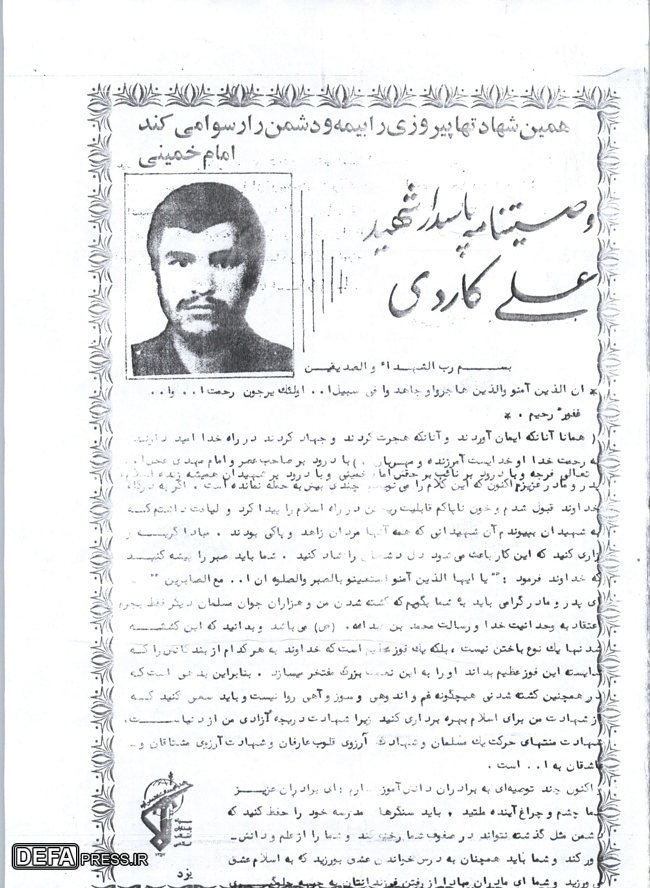 همین شهادتها پیروزی را بیمه و دشمن را رسوا می کند
امام خمینی
وصیتنامه پاسدار شهید
علی کاردی
بسم رب الشهداء والصدیقین
* ان الذین آمنو والذین هاجروا و جاهدوا فی سبیل ا.. اولئك یرجون رحمت ا.. وا..
غفور رحیم . *
( همانا آنانکه ایمان آوردند و آنانکه هجرت کردند و جهاد کردند در راه خدا امید دارند
به رحمت خدا او خدایست آمرزنده و مهربان . ) با درود بر صاحب عصر و امام مهدی عجل ا..
تعالی فرجه و با درود بر نائب بر حقش امام خمینی و با درود بر شهیدان همیشه زنده اسلام
پدر و مادر عزیزم اکنون که این کلام را می نویسم چندی بیش به حمله نمانده است . اگر به درگاه
خداوند قبول شدم و خون ناپاکم قابلیت ریختن در راه اسلام را پیدا کرد و لیاقت داشتم که
به شهیدان بپیوندم آن شهیدانی که همه آنها مردان زاهد و پاکی بودند . مبادا گریه و
زاری کنید که این کار باعث می شود دل دشمنان را شاد کنید . شما باید صبر را پیشه کنید
که خداوند فرمود : " یا ایها الذین آمنو استعینو بالصبر والصلوه ان ا.. مع الصابرین "
ای پدر و مادر گرامی باید به شما بگویم که کشته شدن من و هزاران جوان مسلمان دیگر فقط بجرم
اعتقاد به وحدانیت خدا و رسالت محمد بن عبداله . (ص) می باشد و بدانید که این کشته
شدنها یك نوع باختن نیست ، بلکه یك فوز عظیم است که خداوند به هر کدام از بندگانش را که
شایسته این فوز عظیم بداند او را به این نعمت بزرگ مفتخر میسازد . بنابراین بدیهی است که
در همچنین کشته شدنی هیچگونه غم و اندوهی و سوز و آهی روا نیست و باید سعی کنید که
از شهادت من برای اسلام بهره برداری کنید زیرا شهادت دریچه آزادی من از دنیاست .
شهادت منتهای حرکت یك مسلمان و شهادت آرزوی قلوب عارفان و شهادت آرزوی مشتاقان و -
عاشقان به ا.. است .
اکنون چند توصیه ای به برادران دانش آموز دارم : ای برادران عزیز
شما چشم و چراغ آینده ملتید ، باید سنگرها مدرسه خود را حفظ کنید که
دشمن مثل گذشته نتواند در صفوف شما رخنه کند و شما را از علم و دانش -
دور کند و شما باید همچنان به درس خواندن عشق بورزید که به اسلام عشق
میورزید و شما ای مادران مبادا از رفتن فرزندانتان به جبهه جلوگیری
یزد
DEFAPRESS.IR